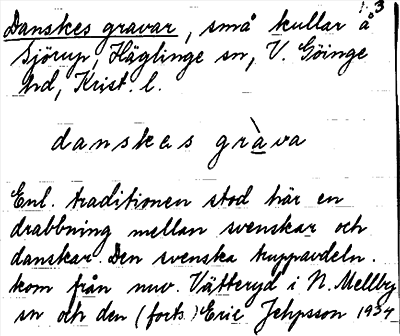 1.3
Danskes gravar, små kullar å
Sjörup, Häglinge sn, V. Göinge
hd, Krist. l.
danskes gràva
Enl. traditionen stod här en
drabbning mellan svenskar och
danskar. Den svenska truppavdeln.
kom från nuv. Vätteryd i N. Mellby
sn och den (forts.) Eric Jehpsson 1934